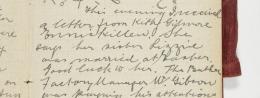 This evening I received
a letter from Kitty Gilmore
Enniskillen. She
says her sister Lizzie
was married at Easter.
Good luck to her. The Butter
Factory Manager Mr Gibson
was paying his attentions